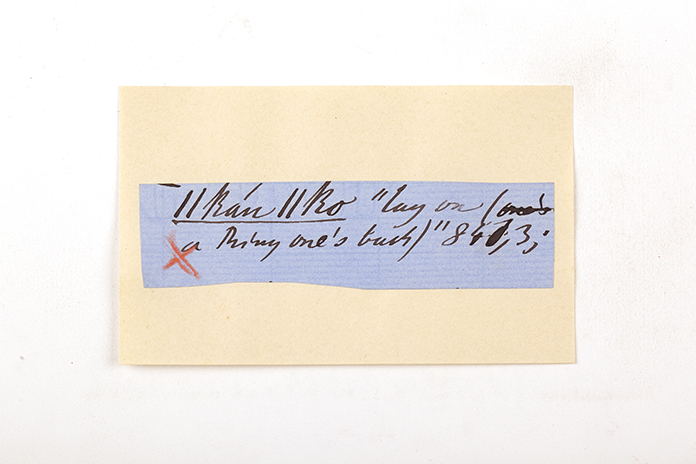 ||kán ||ko "lay on (one's
a thing one's back)" 8 ,3;